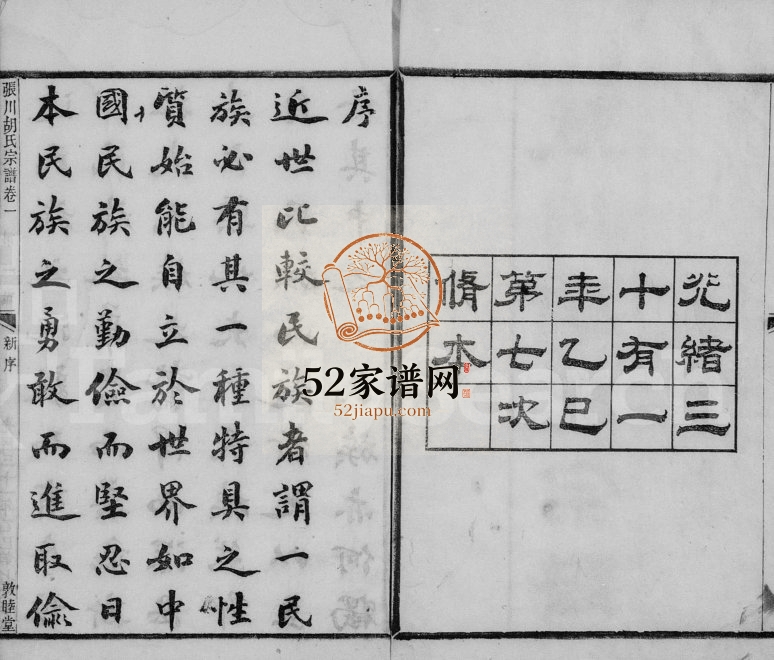 光緒三
十有一
年乙巳
第七次
脩本
序
近世比較民族者謂一民
族必有其一種特具之性
質始能自立於世界如中
國民族之勤儉而堅忍日
本民族之勇敢而進取儉
張川胡氏宗譜卷一
新序
敦睦堂
52家谱网
52jiapu.com